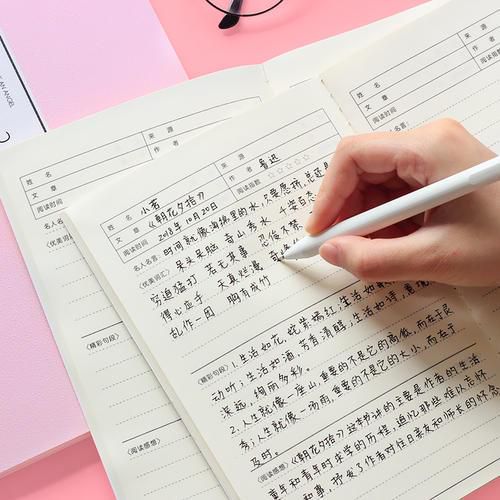 AN ANGEL
姓 名
来 源
文 章
作 者
阅读时间
名人名言:
姓 名
来 源
文 章
作 者
阅读时间
名人
《优美词
《精彩句段》
《阅读感想》
姓 名 小茗
来 源
文 章 《朝花夕拾》
作 者 鲁迅
阅读时间 2018年10月20日
阅读指数 ☆☆☆☆☆
名人名言: 时间就像海绵里的水,只要愿挤,总还是
《优美词汇》 呆头呆脑 奇山秀水 千姿百态
穷追猛打 若无其事 忍俊不禁
得心应手 天真烂漫
乱作一团 胸有成竹
《精彩句段》 1.生活如花,姹紫嫣红,生活如
动听;生活如酒,芳香清醇,生活如诗,意境
深远,绚丽多彩。
2.人生就像一座山,重要的不是它的高低,而在于灵
秀;人生就像一场雨,重要的不是它的大小,而在于
及时。
《阅读感想》 《朝花夕拾》这本书讲的主要是作者的生活
童年和青年时求学的历程,追忆那些难以忘怀
和事,抒发了作者对往日亲友和师长的怀念
来 源
作 者
阅读